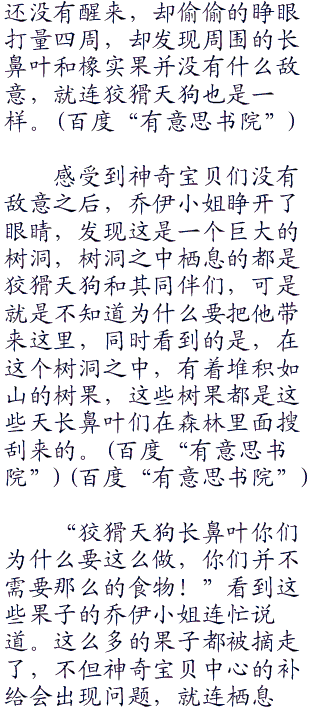 还没有醒来，却偷偷的睁眼
打量四周，却发现周围的长
鼻叶和橡实果并没有什么敌
意，就连狡猾天狗也是一
样。(百度“有意思书院”)
感受到神奇宝贝们没有
敌意之后，乔伊小姐睁开了
眼睛，发现这是一个巨大的
树洞，树洞之中栖息的都是
狡猾天狗和其同伴们，可是
就是不知道为什么要把他带
来这里，同时看到的是，在
这个树洞之中，有着堆积如
山的树果，这些树果都是这
些天长鼻叶们在森林里面搜
刮来的。(百度“有意思书
院”)(百度“有意思书院”)
“狡猾天狗长鼻叶你们
为什么要这么做，你们并不
需要那么的食物！”看到这
些果子的乔伊小姐连忙说
道。这么多的果子都被摘走
了，不但神奇宝贝中心的补
给会出现问题，就连栖息